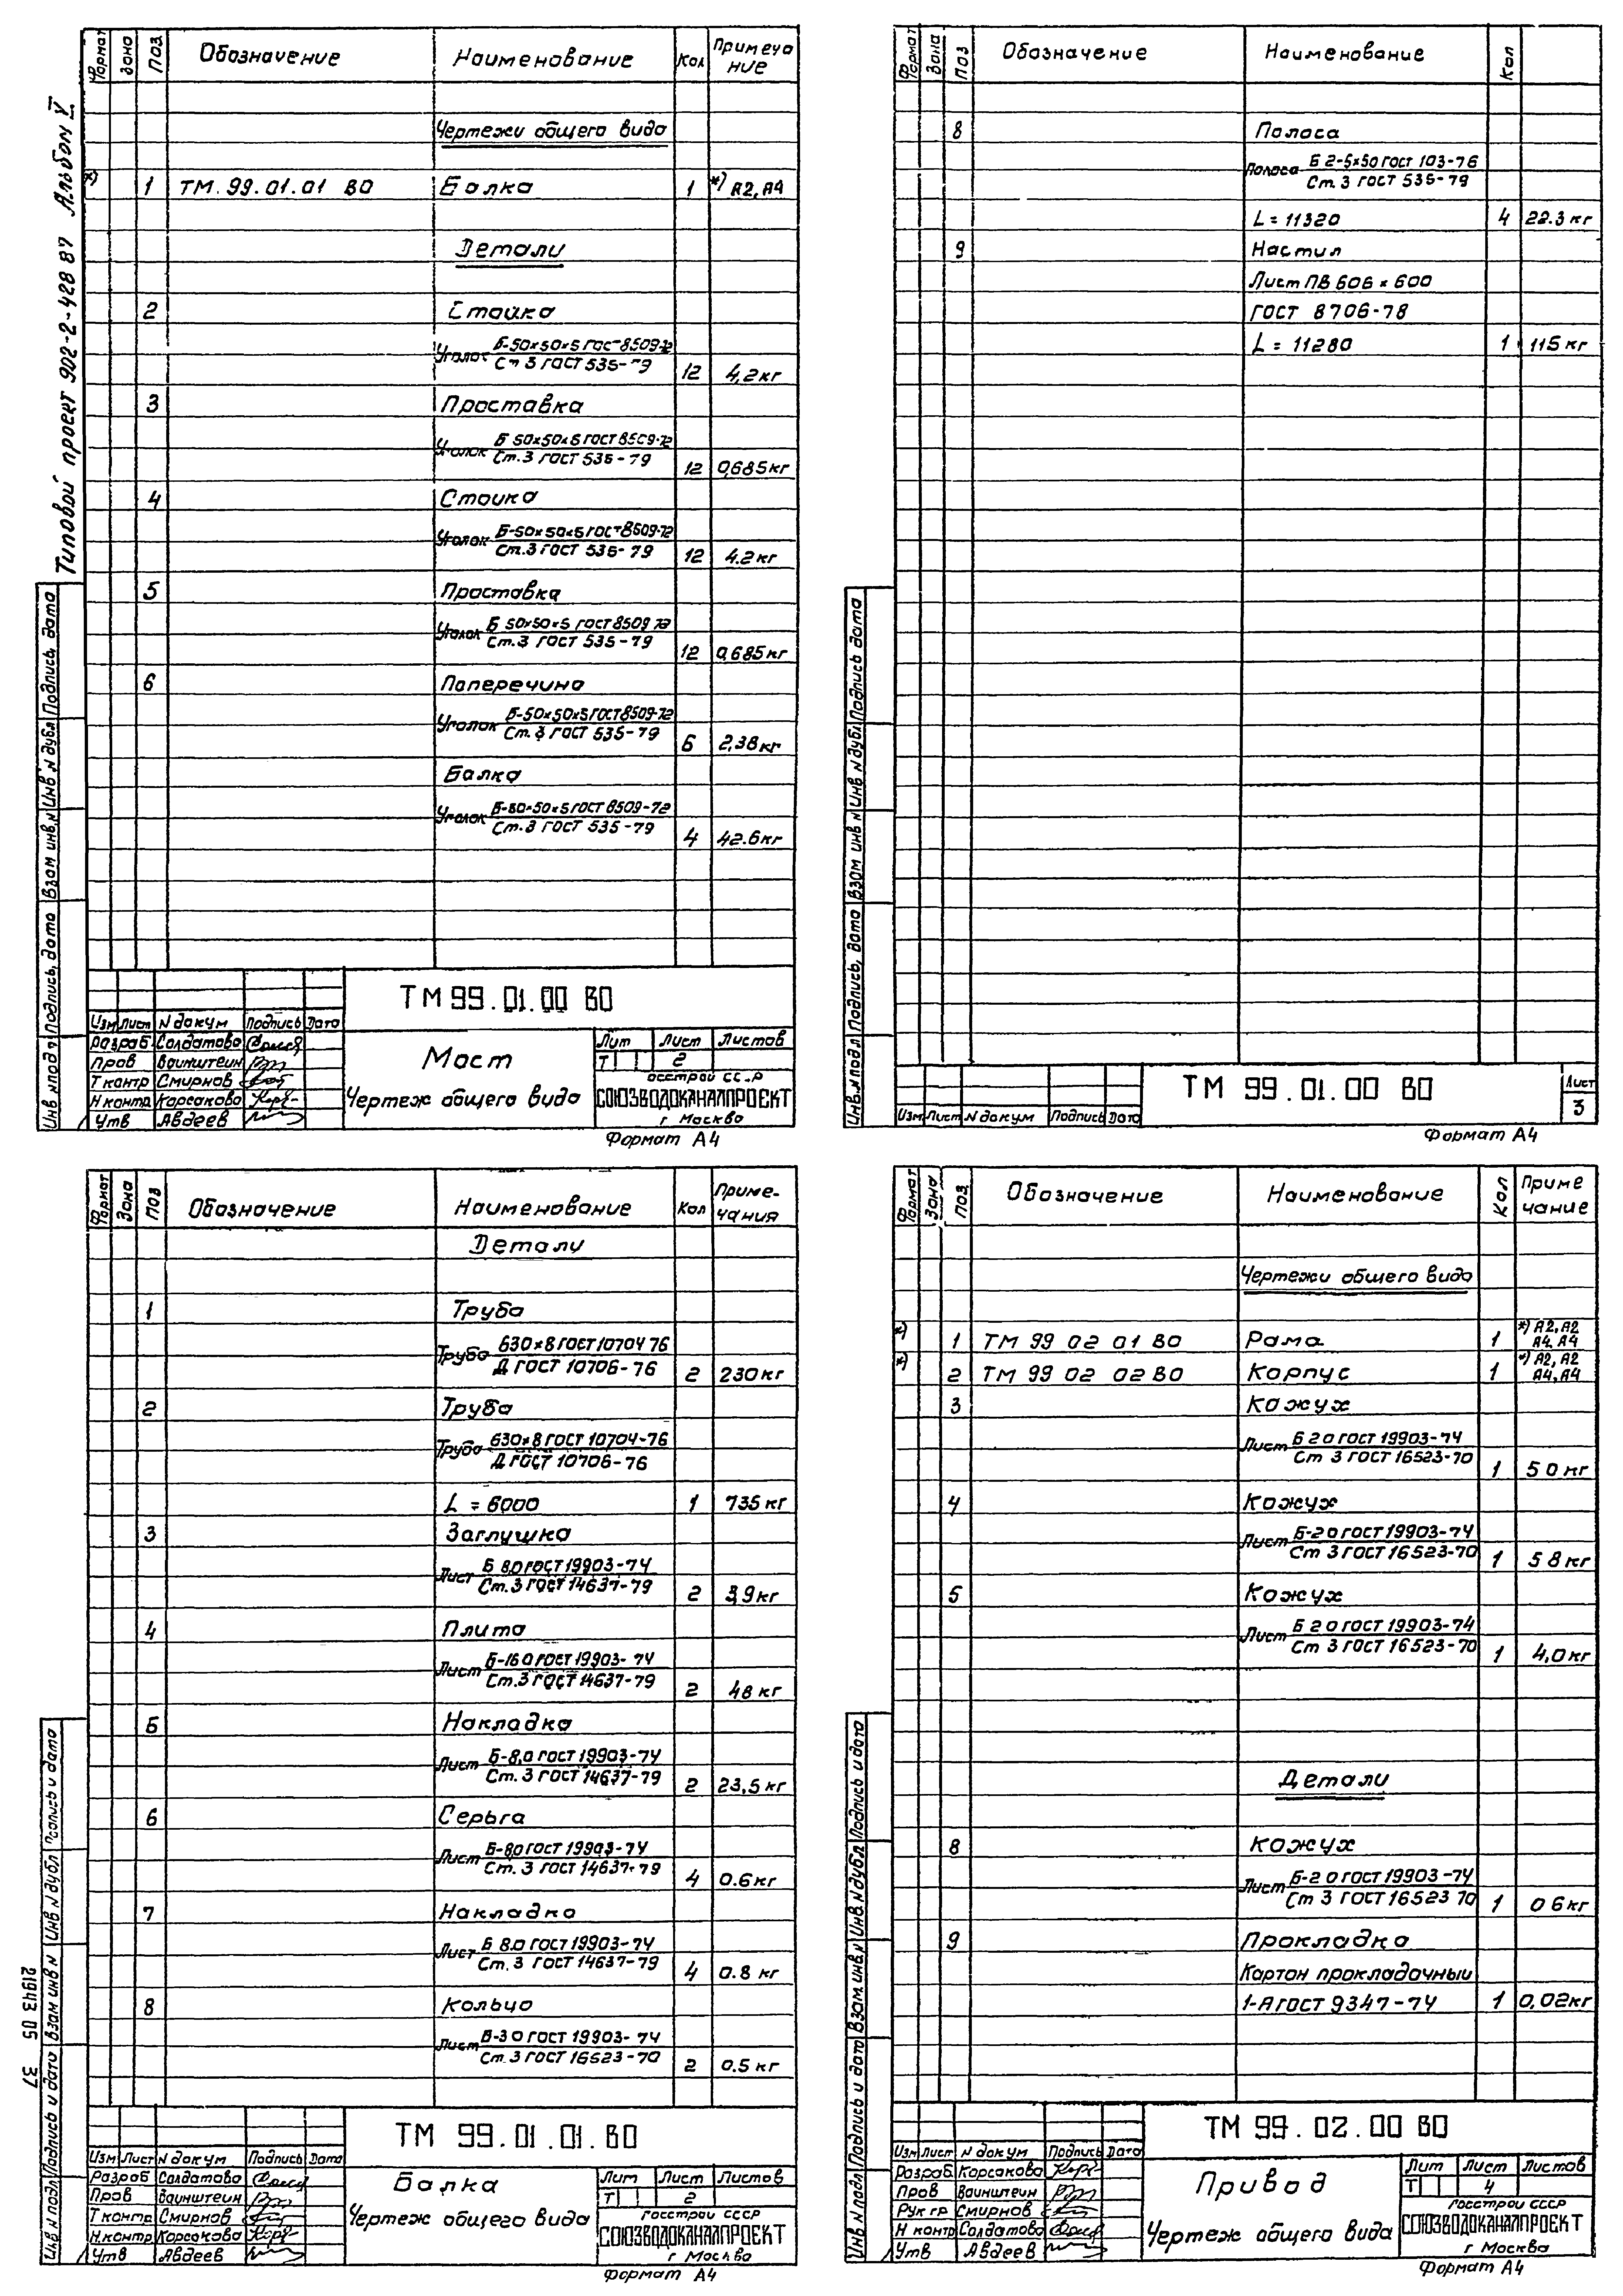 Типовой проект 902-2-428 87 Альбом V
Формат Зона Поз Обозначение Наименование Кол Примеча
ние
Чертежи общего вида
*) 1 ТМ.99.01.01 ВО Балка 1 *) А2, А4
Детали
2 Стойка
Уголок Б-50×50×5 ГОСТ 8509-72
Ст 3 ГОСТ 535-79
12 4,2кг
3 Проставка
Уголок Б 50×50×5 ГОСТ 8509-72
Ст.3 ГОСТ 535-79
12 0,685кг
4 Стойка
Уголок Б-50×50×5 ГОСТ 8509-72
Ст.3 ГОСТ 535-79
12 4.2кг
5 Проставка
Уголок Б 50×50×5 ГОСТ 8509 72
Ст.3 ГОСТ 535-79
12 0,685кг
6 Поперечина
Уголок Б-50×50×5 ГОСТ 8509-72
Ст.3 ГОСТ 535-79
6 2,38кг
Балка
Уголок Б-50×50×5 ГОСТ 8509-72
Ст.3 ГОСТ 535-79
4 42.6кг
Инв.N подл Подпись, дата Взам инв.N Инв N дубл Подпись, дата
ТМ 99.01.00 ВО
Изм Лист N докум Подпись Дата
Разраб Солдатова
Пров Вайнштейн
Т контр Смирнов
Н контр Корсакова
Утв Авдеев
Мост
Чертеж общего вида
Лит Лист Листов
Т 2
Госстрой СССР
СОЮЗВОДОКАНАЛПРОЕКТ
г Москва
Формат А4
Формат Зона Поз Обозначение Наименование Кол
8 Полоса
Полоса Б 2-5×50 ГОСТ 103-76
Ст.3 ГОСТ 535-79
L = 11320 4 22.3 кг
9 Настил
Лист ПВ 606 × 600
ГОСТ 8706-78
L = 11280 1 115 кг
Инв.N подл Подпись, дата Взам инв N Инв N дубл Подпись дата
ТМ 99.01.00 ВО
Лист
3
Изм Лист N докум Подпись Дата
Формат А4
Формат Зона Поз Обозначение Наименование Кол Приме-
чания
Детали
1 Труба
Труба 630×8 ГОСТ 10704 76
Д ГОСТ 10706-76
2 230кг
2 Труба
Труба 630×8 ГОСТ 10704-76
Д ГОСТ 10706-76
L = 6000 1 735 кг
3 Заглушка
Лист Б 8.0 ГОСТ 19903-74
Ст.3 ГОСТ 14637-79
2 3,9кг
4 Плита
Лист Б-16 0 ГОСТ 19903-74
Ст.3 ГОСТ 14637-79
2 48 кг
5 Накладка
Лист Б-8,0 ГОСТ 19903-74
Ст.3 ГОСТ 14637-79
2 23,5 кг
6 Серьга
Лист Б-8,0 ГОСТ 19903-74
Ст.3 ГОСТ 14637-79
4 0.6кг
7 Накладка
Лист Б 8.0 ГОСТ 19903-74
Ст.3 ГОСТ 14637-79
4 0.8 кг
8 Кольцо
Лист Б-3 0 ГОСТ 19903-74
Ст.3 ГОСТ 16523-70
2 0.5 кг
21943 05 37
Инв N подл Подпись и дата Взам инв N Инв N дубл Подпись и дата
ТМ 99.01.01.ВО
Изм Лист N докум Подпись Дата
Разраб Солдатова
Пров Вайнштейн
Т контр Смирнов
Н.контр Корсакова
Утв Авдеев
Балка
Чертеж общего вида
Лит Лист Листов
Т 2
Госстрой СССР
СОЮЗВОДОКАНАЛПРОЕКТ
г Москва
Формат А4
Формат Зона Поз Обозначение Наименование Кол Приме
чание
Чертежи общего вида
*) 1 ТМ 99 02 01 ВО Рама 1 *) А2, А2
А4, А4
*) 2 ТМ 99 02 02 ВО Корпус 1 *) А2, А2
А4, А4
3 Кожух
Лист Б 2 0 ГОСТ 19903-74
Ст 3 ГОСТ 16523-70
1 5 0 кг
4 Кожух
Лист Б-2 0 ГОСТ 19903-74
Ст 3 ГОСТ 16523-70
1 5 8 кг
5 Кожух
Лист Б 2 0 ГОСТ 19903-74
Ст 3 ГОСТ 16523-70
1 4,0кг
Детали
8 Кожух
Лист Б-2 0 ГОСТ 19903-74
Ст 3 ГОСТ 16523 70
1 0 6 кг
9 Прокладка
Картон прокладочный
1-А ГОСТ 9347-74 1 0,02кг
Инв N подл Подпись и дата Взам инв.N Инв.N дубл Подпись и дата
ТМ 99.02.00 ВО
Изм Лист N докум Подпись Дата
Разраб Корсакова
Пров Вайнштейн
Рук гр Смирнов
Н контр Солдатова
Утв Авдеев
Привод
Чертеж общего вида
Лит Лист Листов
Т 4
Госстрой СССР
СОЮЗВОДОКАНАЛПРОЕКТ
г Москва
Формат А4